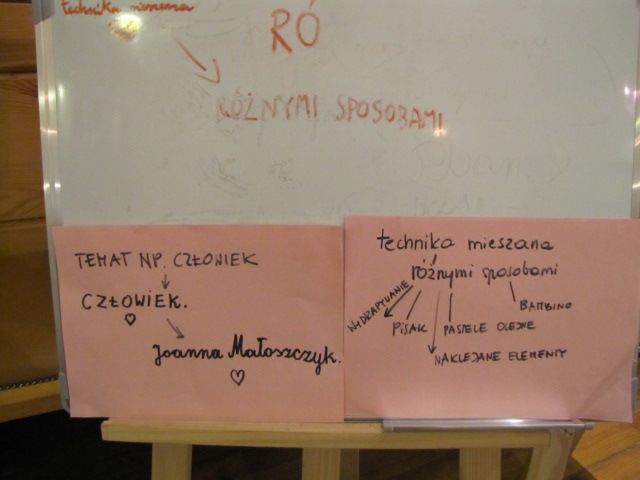 technika mieszana
RÓ
RÓŻNYMI SPOSOBAMI
TEMAT NP. CZŁOWIEK
CZŁOWIEK.
Joanna Małoszczyk.
technika mieszana
różnymi sposobami
WYDRAPYWANIE
BAMBINO
PISAK
PASTELE OLEJNE
NAKLEJANE ELEMENTY